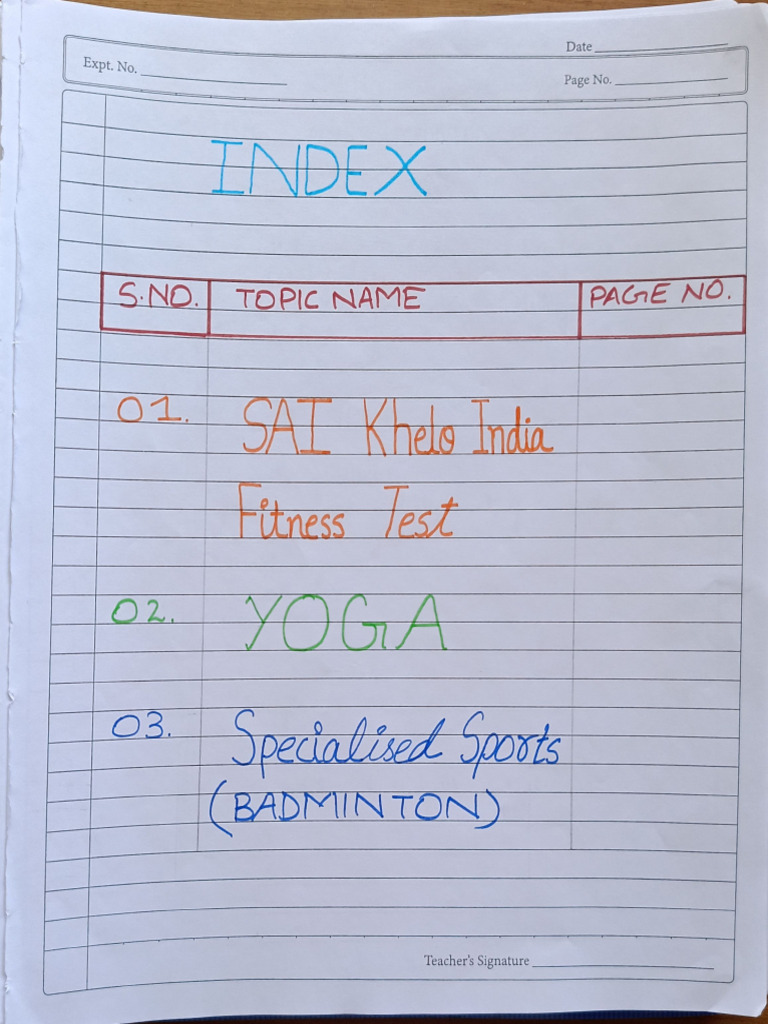 Date
Expt. No.
Page No.
INDEX
S.NO. TOPIC NAME PAGE NO.
01. SAI Khelo India
Fitness Test
02. YOGA
03. Specialised Sports
(BADMINTON)
Teacher's Signature